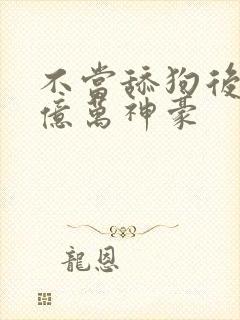 不當舔狗後
億萬神豪
龍恩